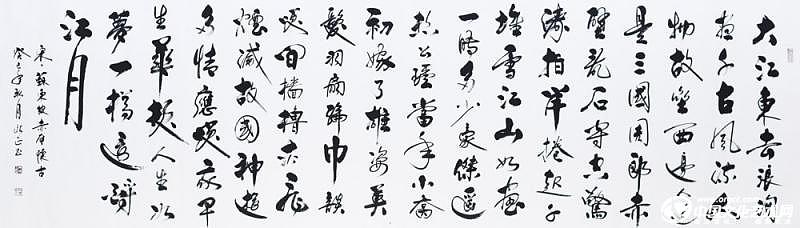 大江東去浪淘
盡千古風流人
物故壘西邊人道
是三國周郎赤
壁亂石穿空驚
濤拍岸捲起千
堆雪江山如畫
一時多少豪傑遥
想公瑾當年小喬
初嫁了雄姿英
發羽扇綸巾談
笑間檣櫓灰飛
煙滅故國神遊
多情應笑我早
生華髮人生如
夢一樽還酹
江月
蘇東坡赤壁懷古
癸巳年秋月
中国文化艺术网